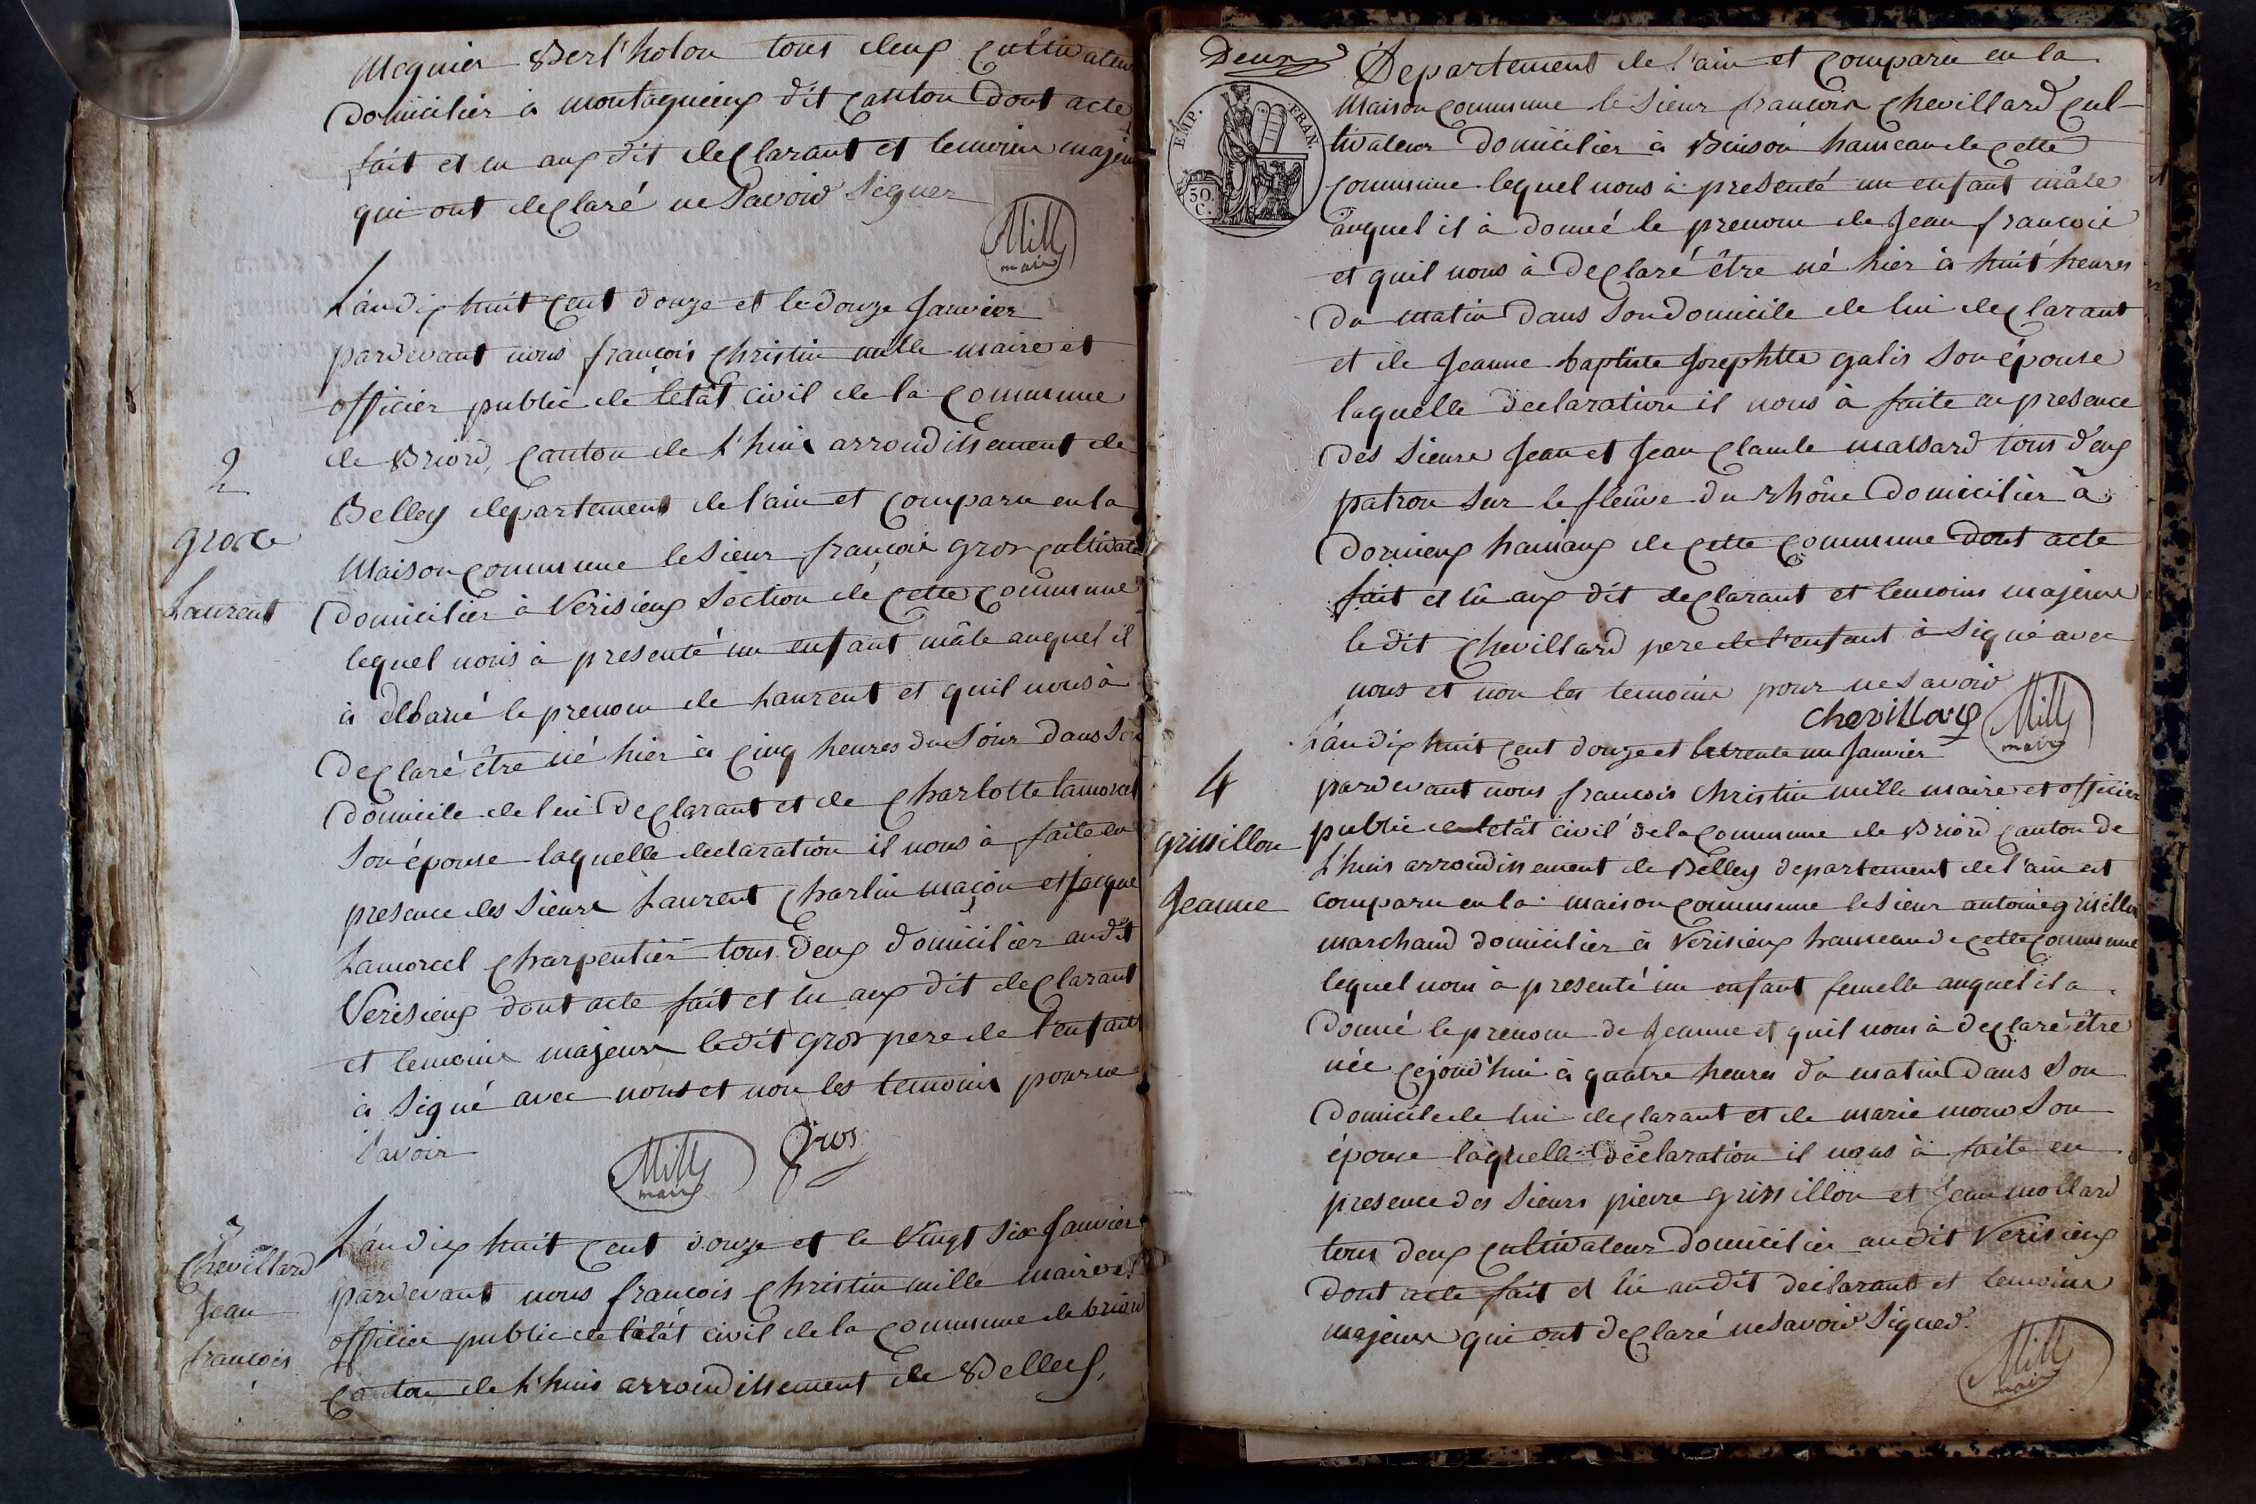 Megnier Bert'holon tous deux cultivateur
domicilier à montagnieux dit canton dont acte
fait et lu aux dit declarant et temoins majeur
qui ont declaré ne savoir signer
Mille
maire
L'an dix huit cent douze et le douze Janvier
pardevant nous françois Christin mille maire et
officier public de l'etât civil de la commune
de Briord, canton de L'huis arrondissement de
2
Belley departement de l'ain et comparu en la
gros
maison commune le sieur françois gros cultivate
Laurent
domicilier à Verisieux section de cette commune
lequel nous à presenté un enfant mâle auquel il
à donné le prenom de Laurent et quil nous à
declaré être né hier à cinq heures du soir dans son
domicile de lui declarant et de Charlotte lamorcel
son épouse laquelle declaration il nous à faite en
presence des sieurs Laurent Charlin maçon et Jacque
Lamorcel charpentier tous deux domicilier audit
Verisieux dont acte fait et lu aux dit declarant
et temoins majeurs ledit gros pere de l'enfant
à signé avec nous et non les temoins pour ne
savoir
Mille
maire
Gros
3
L'an dix huit cent douze et le vingt six Janvier
Chevillard
pardevant nous françois Christin mille maire et
Jean
officier public de l'etât civil de la commune de briord
françois
canton de L'huis arrondissement de Belley,
Deux
EMP. FRAN.
50
C.
Departement de l'ain et comparu en la
maison commune le sieur françois Chevillard cul-
tivateur domicilier à Buison hameau de cette
commune lequel nous à presenté un enfant mâle
auquel il à donné le prenom de Jean françois
et quil nous à declaré être né hier à huit heures
du matin dans son domicile de lui declarant
et de Jeanne baptiste Josephtte galis son épouse
laquelle declaration il nous à faite en presence
des sieurs Jean et Jean Claude massard tous deux
patron sur le fleuve du rhône domicilier à
dornieux hamaux de cette commune dont acte
fait et lu aux dit declarant et temoins majeurs
le dit Chevillard pere de l'enfant à signé avec
nous et non les temoins pour ne savoir
Chevillard
Mille
maire
L'an dix huit cent douze et le trente un Janvier
4
pardevant nous françois Christin mille maire et officier
grissillon
public de l'etât civil de la commune de Briord canton de
L'huis arrondissement de Belley departement de l'ain est
Jeanne
comparu en la maison commune le sieur antoine grisillon
marchand domicilier à Verisieux hameau de cette commune
lequel nous à presenté un enfant femelle auquel il a
donné le prenom de Jeanne et quil nous à declaré être
née cejourd'hui à quatre heures du matin dans son
domicile de lui declarant et de marie son
épouse laquelle declaration il nous à faite en
presence des sieurs pierre grissillon et Jean mollard
tous deux cultivateur domicilier audit Verisieux
dont acte fait et lu audit declarant et temoins
majeurs qui ont declaré ne savoir signer.
Mille
maire